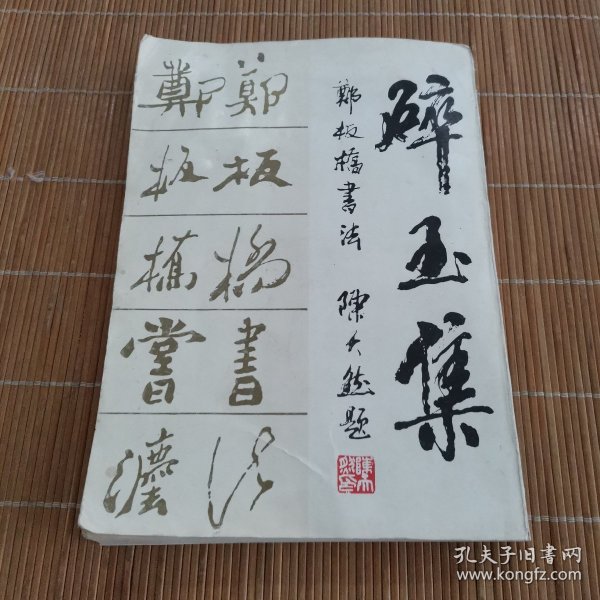 碎玉集
鄭板橋書法
陳大𦙶題
鄭鄭
板板
橋橋
書書
法灋
孔夫子旧書网
www.kongfz.com